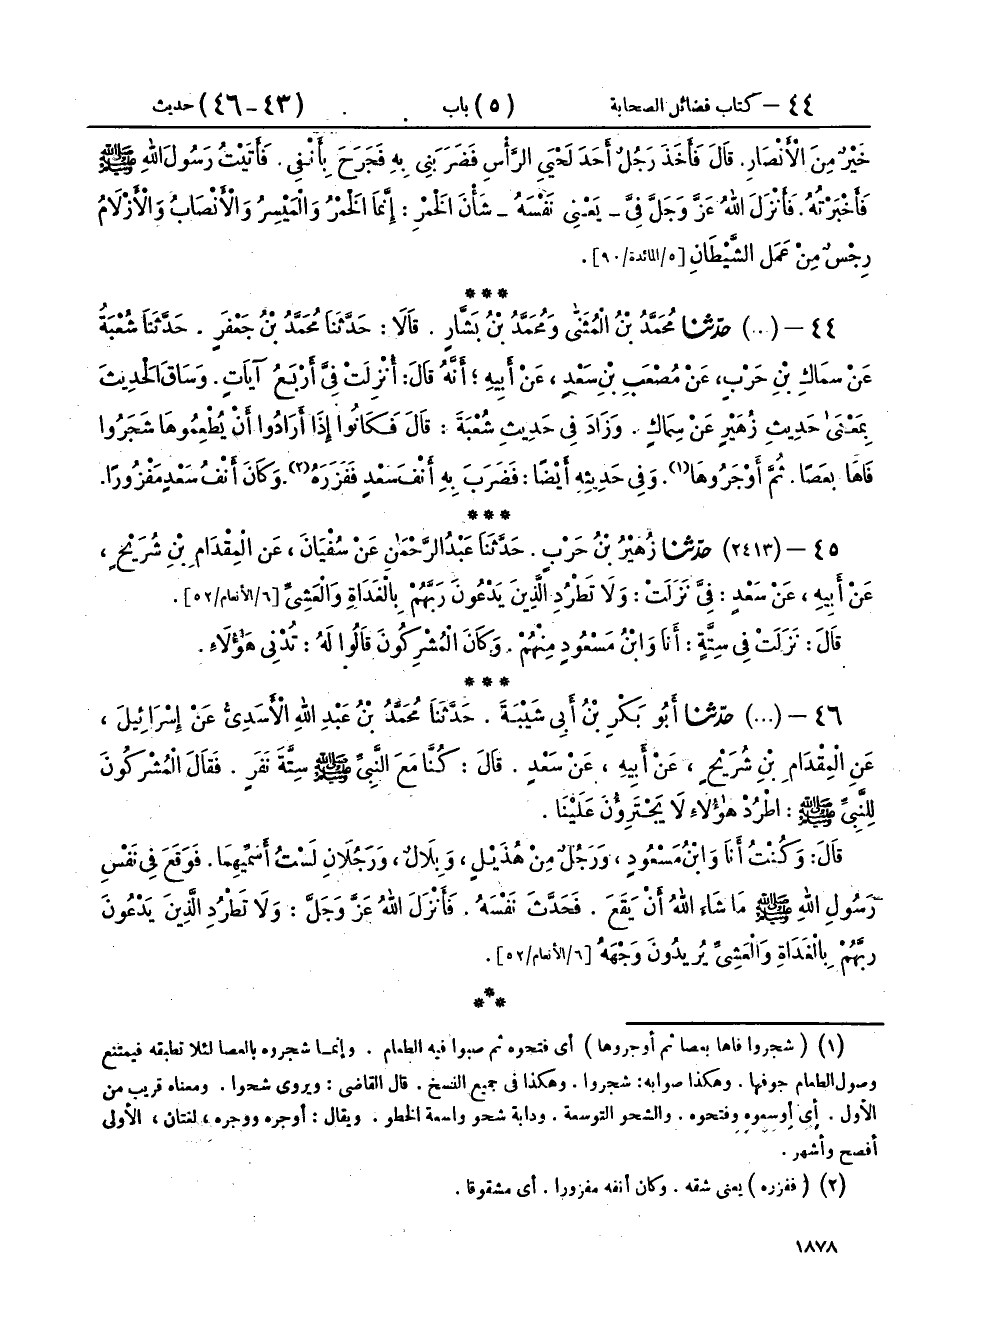 ٤٤ – كتاب فضائل الصحابة (٥) باب (٤٣ – ٤٦) حديث
خَيْرٌ مِنَ الْأَنْصَارِ. قَالَ فَأَخَذَ رَجُلٌ أَحَدَ لَحْيَيِ الرَّأْسِ فَضَرَبَنِي بِهِ فَجَرَحَ بِأَنْفِي. فَأَتَيْتُ رَسُولَ اللهِ ﷺ
فَأَخْبَرْتُهُ. فَأَنْزَلَ اللهُ عَزَّ وَجَلَّ فِيَّ – يَعْنِي نَفْسَهُ – شَأْنَ الْخَمْرِ : إِنَّمَا الْخَمْرُ وَالْمَيْسِرُ وَالْأَنْصَابُ وَالْأَزْلَامُ
رِجْسٌ مِنْ عَمَلِ الشَّيْطَانِ [٥/المائدة/٩٠].
***
٤٤ – (...) حدّثنا مُحَمَّدُ بْنُ الْمُثَنَّى وَمُحَمَّدُ بْنُ بَشَّارٍ . قَالَا : حَدَّثَنَا مُحَمَّدُ بْنُ جَعْفَرٍ . حَدَّثَنَا شُعْبَةُ
عَنْ سِمَاكِ بْنِ حَرْبٍ، عَنْ مُصْعَبِ بْنِ سَعْدٍ ، عَنْ أَبِيهِ ؛ أَنَّهُ قَالَ: أُنْزِلَتْ فِيَّ أَرْبَعُ آيَاتٍ . وَسَاقَ الْحَدِيثَ
بِمَعْنَى حَدِيثِ زُهَيْرٍ عَنْ سِمَاكٍ . وَزَادَ فِي حَدِيثِ شُعْبَةَ : قَالَ فَكَانُوا إِذَا أَرَادُوا أَنْ يُطْعِمُوهَا شَجَرُوا
فَاهَا بِعَصًا. ثُمَّ أَوْجَرُوهَا(١). وَفِي حَدِيثِهِ أَيْضًا : فَضَرَبَ بِهِ أَنْفَ سَعْدٍ فَفَزَرَهُ(٢). وَكَانَ أَنْفُ سَعْدٍ مَفْزُورًا.
***
٤٥ – (٢٤١٣) حدّثنا زُهَيْرُ بْنُ حَرْبٍ . حَدَّثَنَا عَبْدُ الرَّحْمٰنِ عَنْ سُفْيَانَ ، عَنِ الْمِقْدَامِ بْنِ شُرَيْحٍ ،
عَنْ أَبِيهِ ، عَنْ سَعْدٍ : فِيَّ نَزَلَتْ : وَلَا تَطْرُدِ الَّذِينَ يَدْعُونَ رَبَّهُمْ بِالْغَدَاةِ وَالْعَشِيِّ [٦/الأنعام/٥٢] .
قَالَ : نَزَلَتْ فِي سِتَّةٍ : أَنَا وَابْنُ مَسْعُودٍ مِنْهُمْ . وَكَانَ الْمُشْرِكُونَ قَالُوا لَهُ : تُدْنِي هٰؤُلَاءِ .
***
٤٦ – (...) حدّثنا أَبُو بَكْرِ بْنُ أَبِي شَيْبَةَ . حَدَّثَنَا مُحَمَّدُ بْنُ عَبْدِ اللهِ الْأَسَدِيُّ عَنْ إِسْرَائِيلَ ،
عَنِ الْمِقْدَامِ بْنِ شُرَيْحٍ ، عَنْ أَبِيهِ ، عَنْ سَعْدٍ . قَالَ : كُنَّا مَعَ النَّبِيِّ ﷺ سِتَّةَ نَفَرٍ . فَقَالَ الْمُشْرِكُونَ
لِلنَّبِيِّ ﷺ : اطْرُدْ هٰؤُلَاءِ لَا يَجْتَرِؤُنَ عَلَيْنَا .
قَالَ : وَكُنْتُ أَنَا وَابْنُ مَسْعُودٍ ، وَرَجُلٌ مِنْ هُذَيْلٍ ، وَبِلَالٌ ، وَرَجُلَانِ لَسْتُ أُسَمِّيهِمَا . فَوَقَعَ فِي نَفْسِ
رَسُولِ اللهِ ﷺ مَا شَاءَ اللهُ أَنْ يَقَعَ . فَحَدَّثَ نَفْسَهُ . فَأَنْزَلَ اللهُ عَزَّ وَجَلَّ : وَلَا تَطْرُدِ الَّذِينَ يَدْعُونَ
رَبَّهُمْ بِالْغَدَاةِ وَالْعَشِيِّ يُرِيدُونَ وَجْهَهُ [٦/الأنعام/٥٢] .
***
(١) ( شجروا فاها بعصا ثم أوجروها ) أى فتحوه ثم صبوا فيه الطعام . وإنما شجروه بالعصا لئلا تطبقه فيمتنع
وصول الطعام جوفها . وهكذا صوابه: شجروا . وهكذا فى جميع النسخ . قال القاضى : ويروى شحوا . ومعناه قريب من
الأول . أى أوسعوه وفتحوه . والشحو التوسعة . ودابة شحو واسعة الخطو . ويقال : أوجره ووجره ، لغتان ، الأولى
أفصح وأشهر .
(٢) ( ففزره ) يعنى شقه . وكان أنفه مفزورا . أى مشقوقا .
١٨٧٨